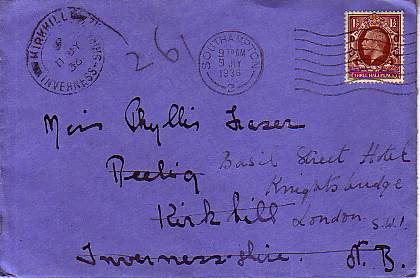 KIRKHILL
11 JY
36
INVERNESS-SHIRE
261
SOUTHAMPTON
9 PM
9 JLY
1936
2
1½ 1½
THREE HALFPENCE
Miss Phyllis Fraser
Reelig
Basil Street Hotel
Knightsbridge
Kirkhill
London S.W.1.
Inverness-shire. N.B.